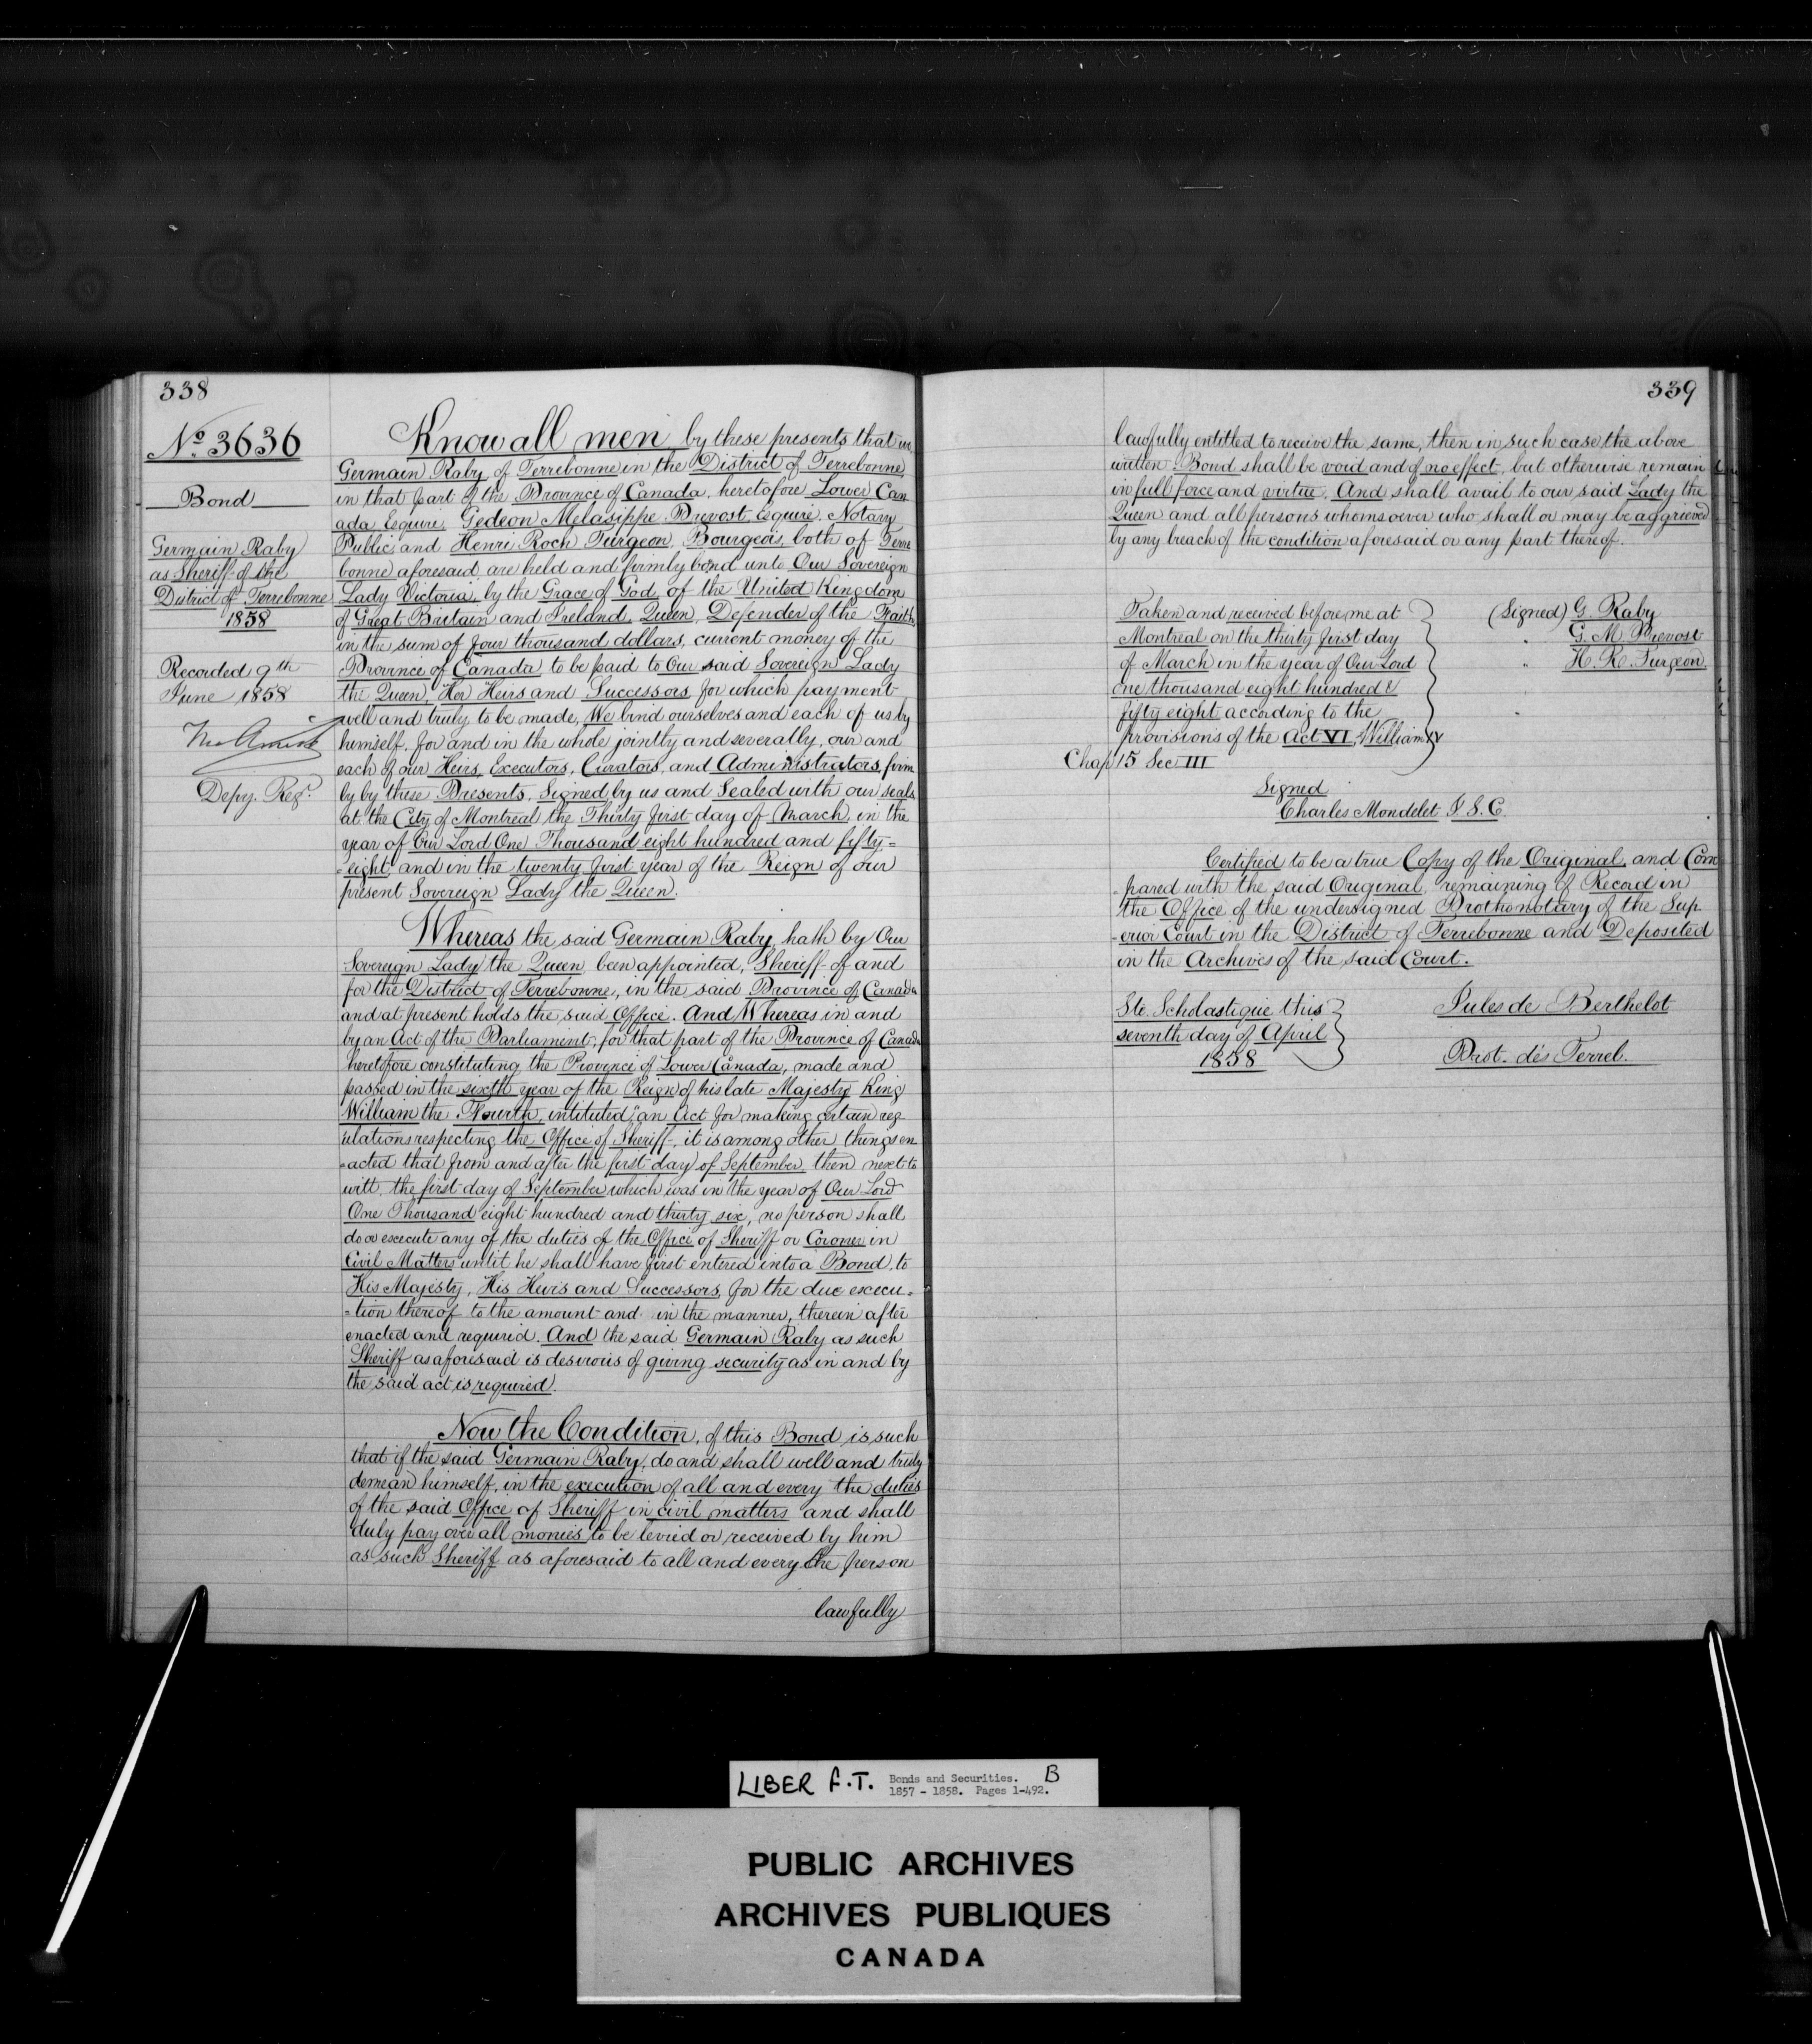 338
No. 3636
Bond
Germain Raby
as Sheriff of the
District of Terrebonne
1858
Recorded 9th
June 1858
Depy. Regr.
Know all men by these presents that we
Germain Raby of Terrebonne in the District of Terrebonne
in that part of the Province of Canada, heretofore Lower Can
ada Esquire, Gedeon Melasippe Prevost, Esquire, Notary
Public, and Henri Roch Turgeon, Bourgeois, both of Terre
bonne aforesaid, are held and firmly bond unto Our Sovereign
Lady Victoria, by the Grace of God, of the United Kingdom
of Great Britain and Ireland, Queen, Defender of the Faith,
in the sum of four thousand dollars, current money of the
Province of Canada to be paid to Our said Sovereign Lady
the Queen, Her Heirs and Successors, for which payment
well and truly to be made, We bind ourselves and each of us by
himself, for and in the whole jointly and severally, our and
each of our Heirs, Executors, Curators, and Administrators, firm
ly by these Presents, Signed by us and Sealed with our seals
at the City of Montreal the Thirty first day of March, in the
year of Our Lord One Thousand eight hundred and fifty=
=eight, and in the twenty first year of the Reign of our
present Sovereign Lady the Queen.
Whereas the said Germain Raby, hath by Our
Sovereign Lady the Queen, been appointed, Sheriff of and
for the District of Terrebonne, in the said Province of Canada
and at present holds the said Office. And Whereas in and
by an Act of the Parliament, for that part of the Province of Canada
heretofore constituting the Province of Lower Canada, made and
passed in the sixth year of the Reign of his late Majesty King
William the Fourth, intituted, "an Act for making certain reg
ulations respecting the Office of Sheriff, it is among other things en
=acted that from and after the first day of September then next to
witt, the first day of September which was in the year of Our Lord
One Thousand eight hundred and thirty six, no person shall
do or execute any of the duties of the Office of Sheriff or Coroner in
Civil Matters until he shall have first entered into a Bond, to
His Majesty, His Heirs and Successors, for the due execu=
=tion thereof to the amount and in the manner, therein after
enacted and required. And the said Germain Raby as such
Sheriff as aforesaid is desirous of giving security as in and by
the said act is required.
Now the Condition, of this Bond is such
that if the said Germain Raby, do and shall well and truly
demean himself, in the execution of all and every the duties
of the said Office of Sheriff in civil matters and shall
duly pay over all monies to be levied or received by him
as such Sheriff as aforesaid to all and every the person
lawfully
339
lawfully entitled to receive the same, then in such case, the above
written Bond shall be void and of no effect, but otherwise remain
in full force and virtue. And shall avail to our said Lady the
Queen and all persons whomsoever who shall or may be aggrieved
by any breach of the condition aforesaid or any part thereof.
Taken and received before me at
Montreal on the thirty first day
of March in the year of Our Lord
one thousand eight hundred &
fifty eight according to the
provisions of the Act VI, William IV
Chap 15 Sec III
(Signed) G. Raby
" G. M. Prevost
" H. R. Turgeon
Signed
Charles Mondelet J. S. C.
Certified to be a true Copy of the Original, and Com
=pared with the said Original, remaining of Record in
the Office of the undersigned Prothonotary of the Sup
=erior Court in the District of Terrebonne and Deposited
in the Archives of the said Court.
Ste. Scholastique this
seventh day of April
1858
Jules de Berthelot
Prot. dés Terrel.
LIBER F.T. Bonds and Securities. B
1857 - 1858. Pages 1-492.
PUBLIC ARCHIVES
ARCHIVES PUBLIQUES
CANADA